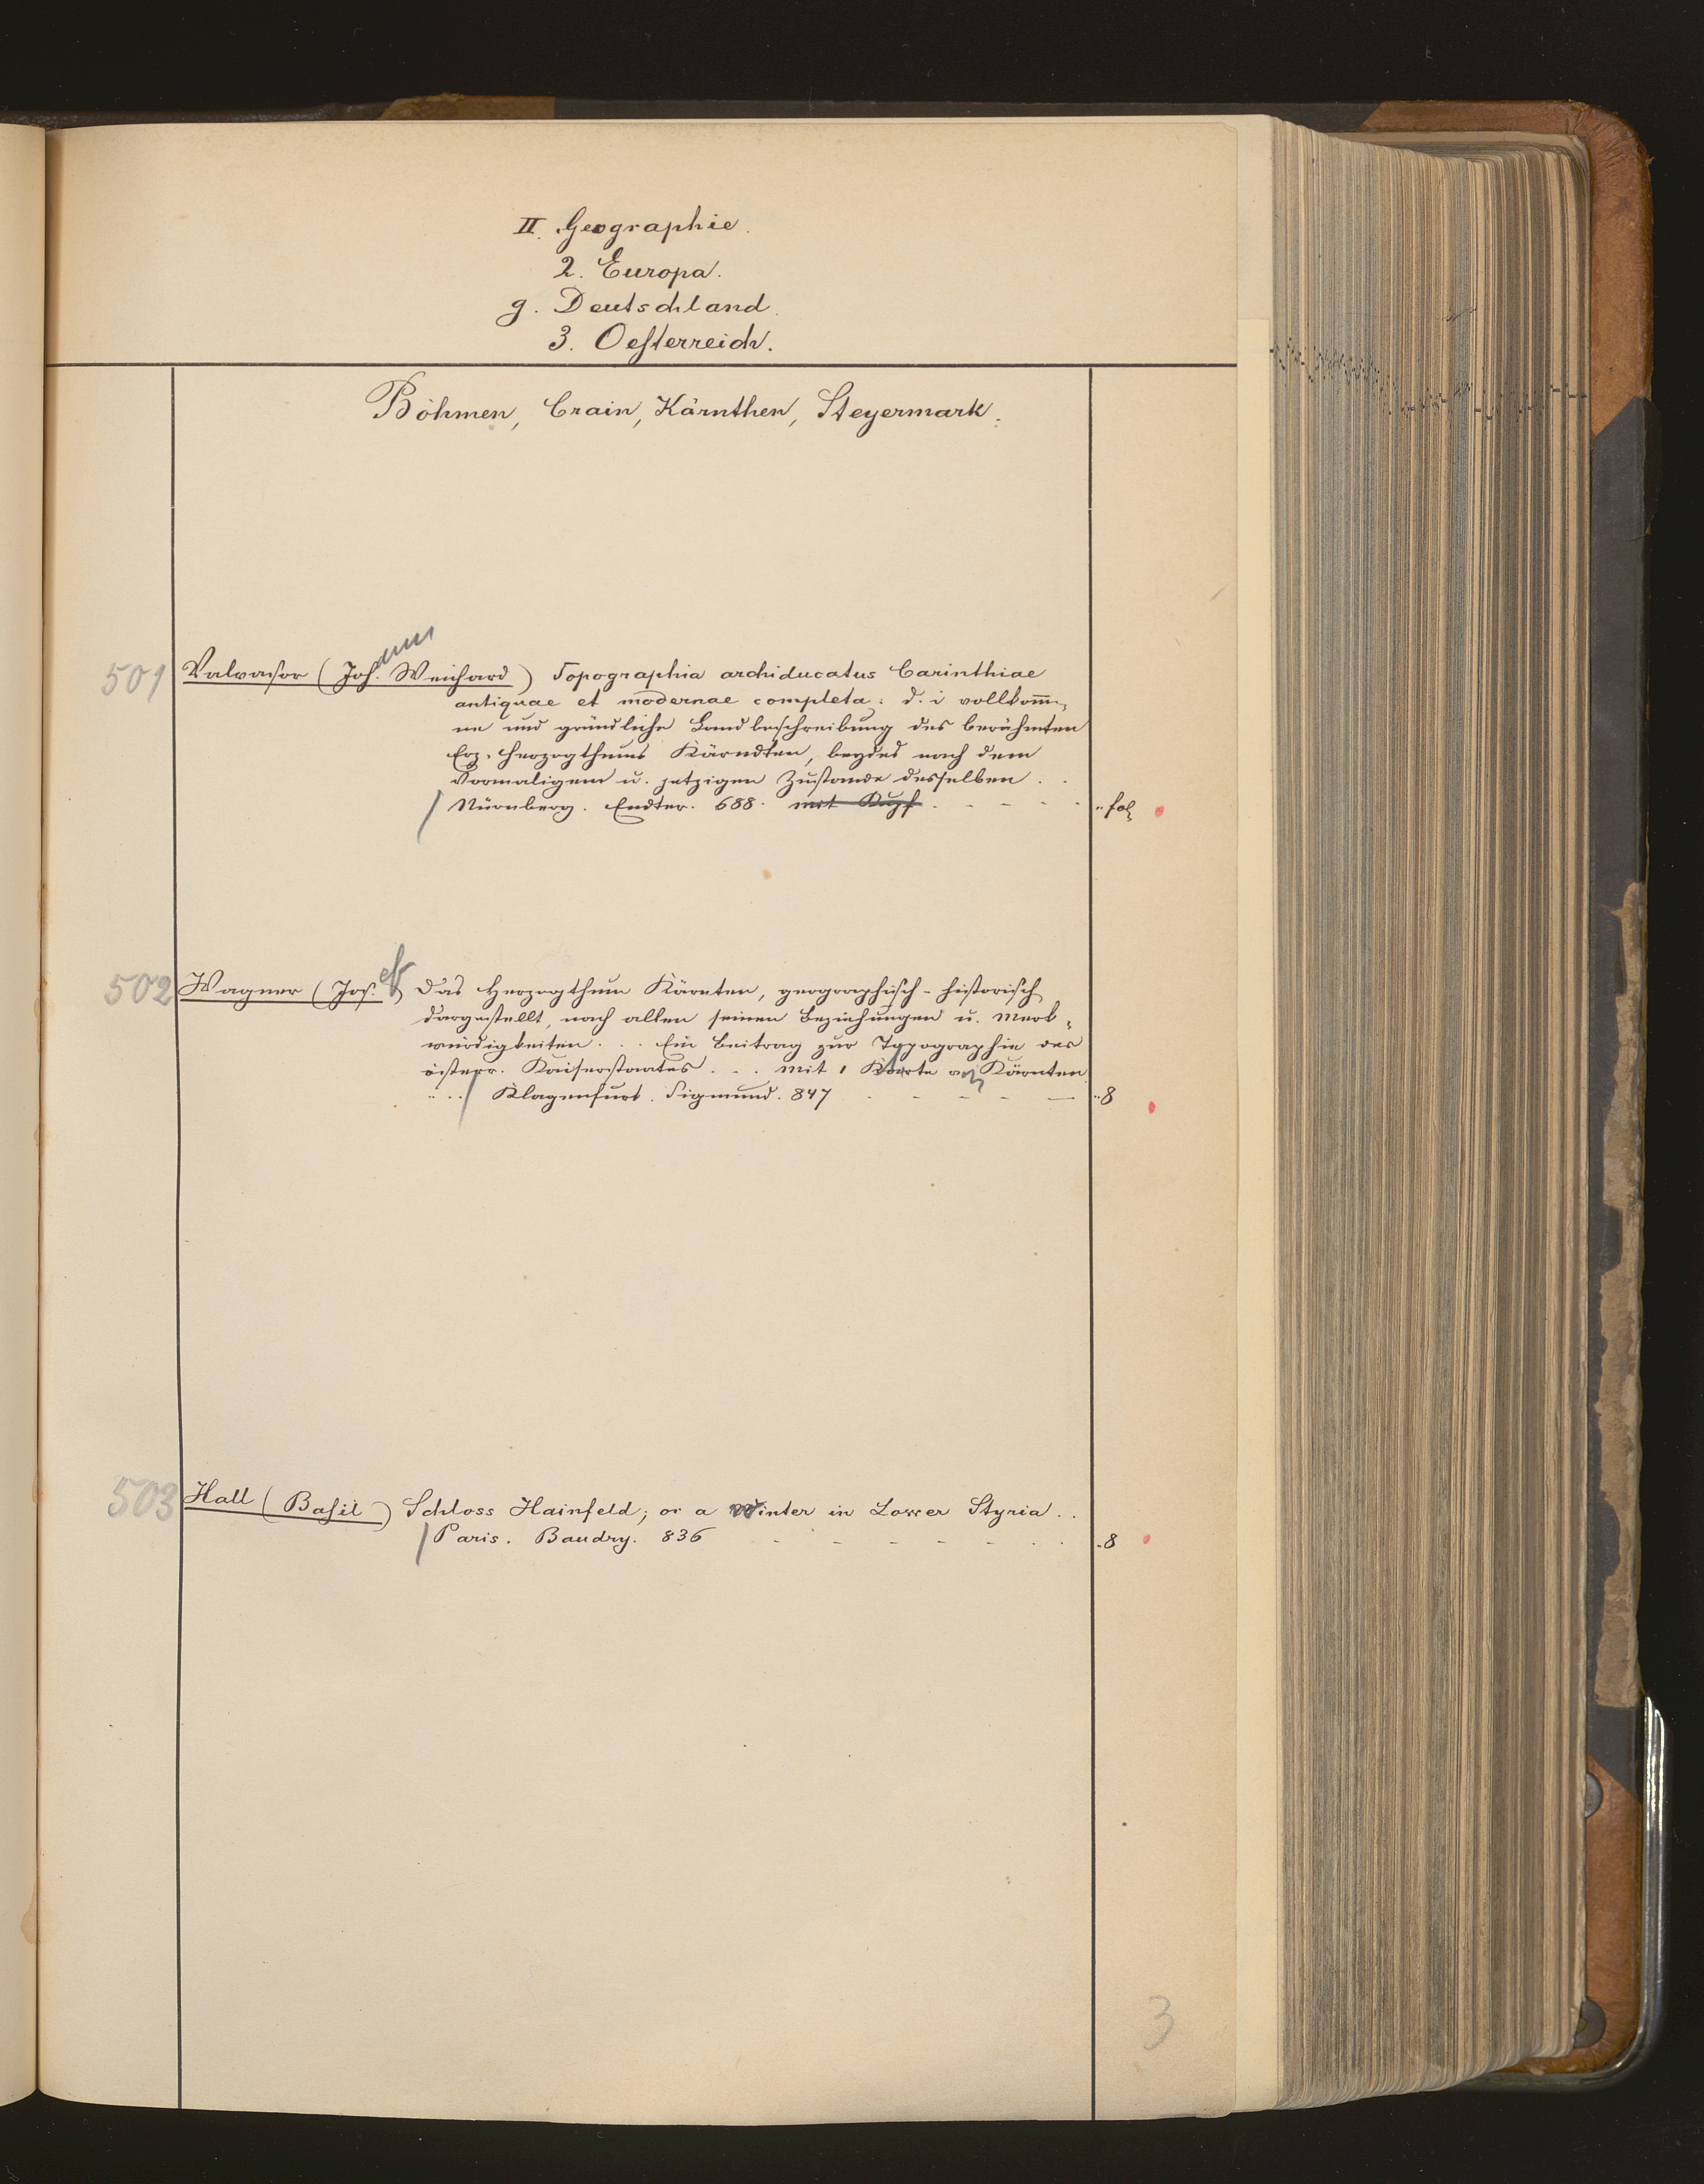 II. Geographie.
2. Europa.
g. Deutschland.
3. Oesterreich.
Böhmen, Crain, Kärnthen, Steyermark.
501 Valvasor (Johann Weichard) Topographia archiducatus Carinthiae
antiquae et modernae completa: d. i vollkom̅-
ne und gründliche Landbeschreibung des berühmten
Erz-Herzogthums Kärndten, beydes nach dem
Vormaligem u. jetzigen Zustande desselben . .
Nürnberg. Endter. 688. mit Kupf. - - - - " fol
502 Wagner (Josef) Das Herzogthum Kärnten, geographisch-historisch
dargestellt, nach allen seinen Beziehungen u. Merk-
würdigkeiten. . . Ein Beitrag zur Topographie des
österr. Kaiserstaates . . . Mit 1 Karte von Kärnten
" . . Klagenfurt. Sigmund. 847 - - - - - " 8
503 Hall (Basil) Schloss Hainfeld; or a Winter in Lower Styria . .
Paris. Baudry. 836 - - - - - . . " 8
3